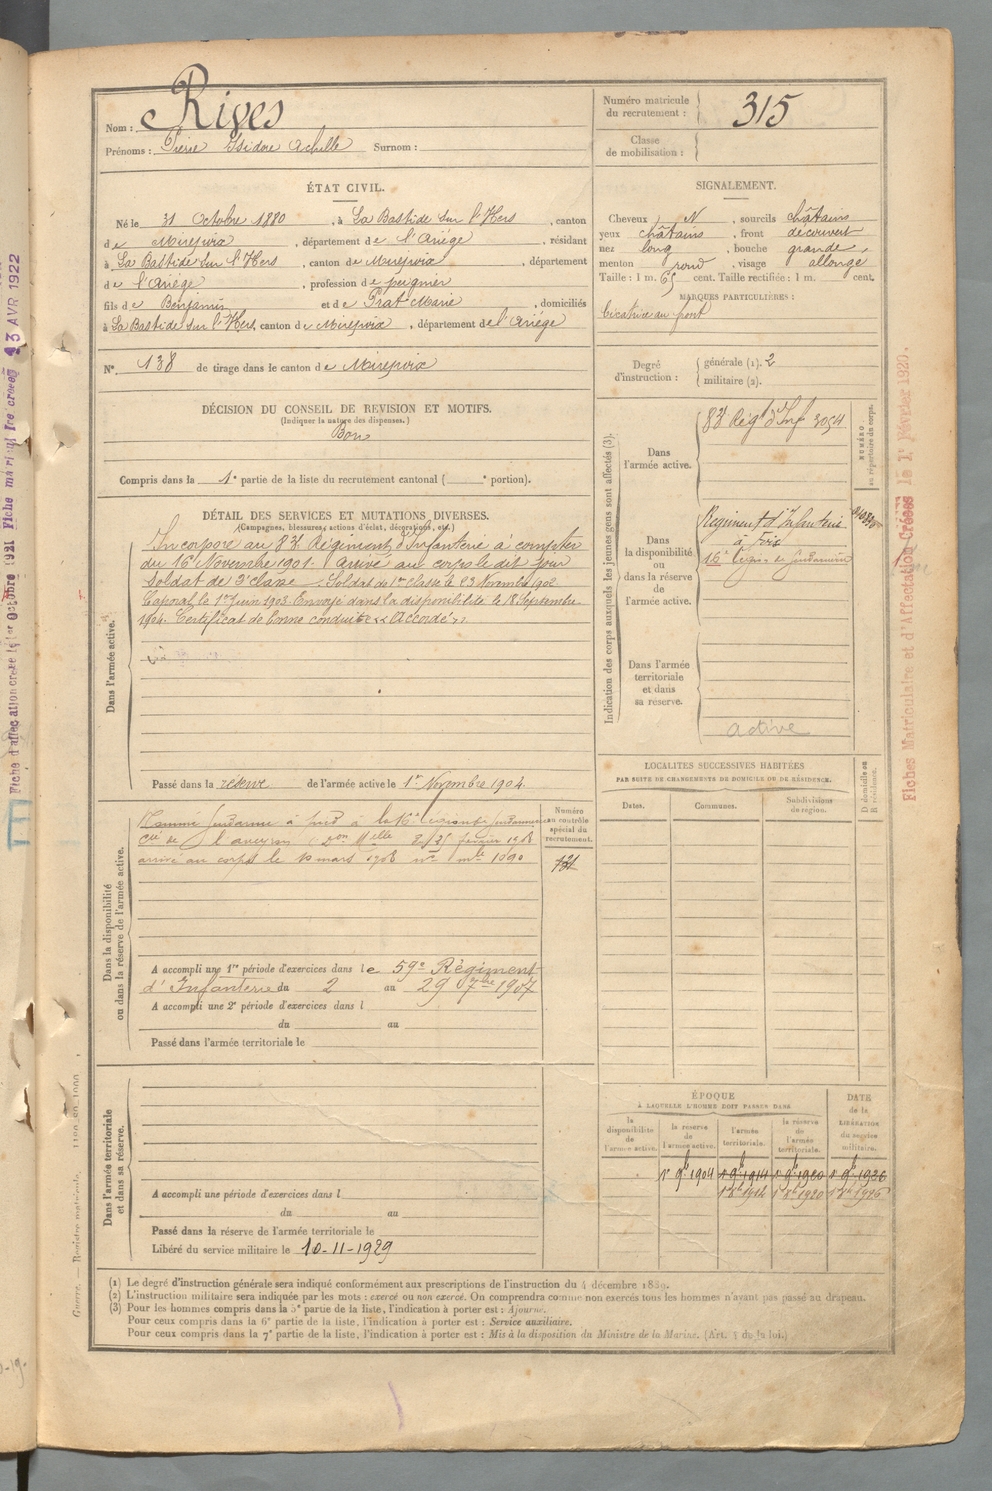 Nom : Rives
Prénoms : Pierre Isidore Achille Surnom :
Numéro matricule du recrutement : 315
Classe de mobilisation :
ÉTAT CIVIL.
Né le 31 Octobre 1880, à La Bastide sur l'Hers, canton
de Mirepoix, département de l'Ariège, résidant
à La Bastide sur l'Hers, canton de Mirepoix, département
de l'Ariège, profession de peignier
fils de Benjamin et de Prat Marie, domiciliés
à La Bastide sur l'Hers, canton de Mirepoix, département de l'Ariège
N° 138 de tirage dans le canton de Mirepoix
SIGNALEMENT.
Cheveux N, sourcils châtains
yeux châtains, front découvert
nez long, bouche grande,
menton rond, visage allongé
Taille : 1 m. 65 cent. Taille rectifiée : 1 m. cent.
MARQUES PARTICULIÈRES :
Cicatrice au front
Degré d'instruction : générale (1). 2
militaire (2).
DÉCISION DU CONSEIL DE REVISION ET MOTIFS.
(Indiquer la nature des dispenses.)
Bon
Compris dans la 1e partie de la liste du recrutement cantonal ( e portion).
DÉTAIL DES SERVICES ET MUTATIONS DIVERSES.
(Campagnes, blessures, actions d'éclat, décorations, etc.)
Dans l'armée active.
Incorporé au 83e Régiment d'Infanterie à compter
du 16 Novembre 1901. Arrivé au corps le dit jour
Soldat de 2e classe. Soldat de 1re classe le 23 Novembre 1902
Caporal le 1er Juin 1903. Envoyé dans la disponibilité le 18 Septembre
1904. Certificat de bonne conduite « Accordé ».
Passé dans la réserve de l'armée active le 1er Novembre 1904.
Indication des corps auxquels les jeunes gens sont affectés (3).
Dans l'armée active.
83e Régt d'Inf 3054
NUMÉRO au répertoire du corps.
Dans la disponibilité ou dans la réserve de l'armée active.
Régiment d'Infanterie
à Foix
16e légion de gendarmerie
Dans l'armée territoriale et dans sa réserve.
active
LOCALITÉS SUCCESSIVES HABITÉES
PAR SUITE DE CHANGEMENTS DE DOMICILE OU DE RÉSIDENCE.
Dates. Communes. Subdivisions de région. D domicile ou R résidence.
Dans la disponibilité ou dans la réserve de l'armée active.
Numéro au contrôle spécial du recrutement.
Nommé gendarme à pied à la 16e légion de gendarmerie
Cie de l'aveyron (Don Mlle du 25 février 1908
arrivé au corps le 10 mars 1908 no mle 1090
A accompli une 1re période d'exercices dans le 59e Régiment
d'Infanterie du 2 au 29 7bre 1907
A accompli une 2e période d'exercices dans l
du au
Passé dans l'armée territoriale le
Dans l'armée territoriale et dans sa réserve.
A accompli une période d'exercices dans l
du au
Passé dans la réserve de l'armée territoriale le
Libéré du service militaire le 10-11-1929
ÉPOQUE
À LAQUELLE L'HOMME DOIT PASSER DANS
la disponibilité de l'armée active. la réserve de l'armée active. l'armée territoriale. la réserve de l'armée territoriale. DATE de la LIBÉRATION du service militaire.
1er 9b 1904 1er 9b 1914 1er 9b 1920 1er 9b 1926
(1) Le degré d'instruction générale sera indiqué conformément aux prescriptions de l'instruction du 4 décembre 1889.
(2) L'instruction militaire sera indiquée par les mots : exercé ou non exercé. On comprendra comme non exercés tous les hommes n'ayant pas passé au drapeau.
(3) Pour les hommes compris dans la 5e partie de la liste, l'indication à porter est : Ajourné.
Pour ceux compris dans la 6e partie de la liste, l'indication à porter est : Service auxiliaire.
Pour ceux compris dans la 7e partie de la liste, l'indication à porter est : Mis à la disposition du Ministre de la Marine. (Art. 4 de la loi.)
Fiches Matriculaire et d'Affectation Créées le 1er Février 1920.
Guerre. — Registre matricule.